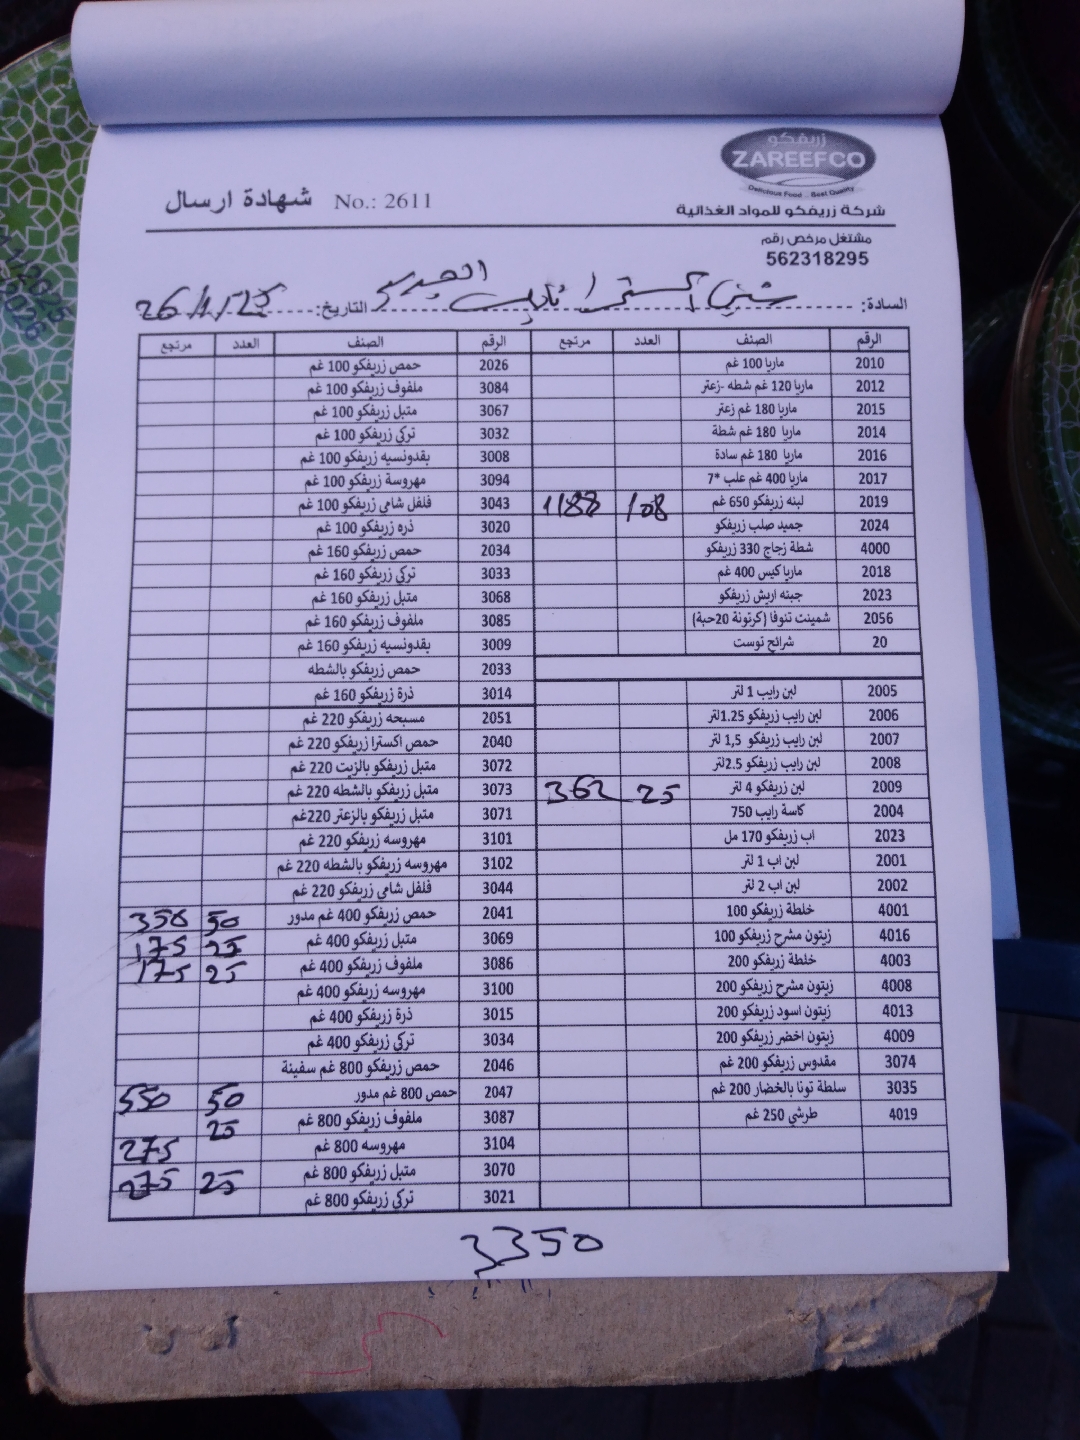 زريفكو
ZAREEFCO
Delicious Food .. Best Quality
شركة زريفكو للمواد الغذائية
شهادة ارسال No.: 2611
مشتغل مرخص رقم
562318295
السادة: التاريخ: 26/1/25
الرقم الصنف العدد مرتجع الرقم الصنف العدد مرتجع
2010 ماريا 100 غم 2026 حمص زريفكو 100 غم
2012 ماريا 120 غم شطه -زعتر 3084 ملفوف زريفكو 100 غم
2015 ماريا 180 غم زعتر 3067 متبل زريفكو 100 غم
2014 ماريا 180 غم شطة 3032 تركي زريفكو 100 غم
2016 ماريا 180 غم سادة 3008 بقدونسيه زريفكو 100 غم
2017 ماريا 400 غم علب *7 3094 مهروسة زريفكو 100 غم
2019 لبنه زريفكو 650 غم 108 1188 3043 فلفل شامي زريفكو 100 غم
2024 جميد صلب زريفكو 3020 ذره زريفكو 100 غم
4000 شطة زجاج 330 زريفكو 2034 حمص زريفكو 160 غم
2018 ماريا كيس 400 غم 3033 تركي زريفكو 160 غم
2023 جبنه اريش زريفكو 3068 متبل زريفكو 160 غم
2056 شمينت تنوفا (كرتونة 20حبة) 3085 ملفوف زريفكو 160 غم
20 شرائح توست 3009 بقدونسيه زريفكو 160 غم
2033 حمص زريفكو بالشطه
2005 لبن رايب 1 لتر 3014 ذرة زريفكو 160 غم
2006 لبن رايب زريفكو 1.25لتر 2051 مسبحه زريفكو 220 غم
2007 لبن رايب زريفكو 1,5 لتر 2040 حمص اكسترا زريفكو 220 غم
2008 لبن رايب زريفكو 2.5لتر 3072 متبل زريفكو بالزيت 220 غم
2009 لبن زريفكو 4 لتر 25 362 3073 متبل زريفكو بالشطه 220 غم
2004 كاسة رايب 750 3071 متبل زريفكو بالزعتر 220غم
2023 اب زريفكو 170 مل 3101 مهروسه زريفكو 220 غم
2001 لبن اب 1 لتر 3102 مهروسه زريفكو بالشطه 220 غم
2002 لبن اب 2 لتر 3044 فلفل شامي زريفكو 220 غم
4001 خلطة زريفكو 100 2041 حمص زريفكو 400 غم مدور 50 350
4016 زيتون مشرح زريفكو 100 3069 متبل زريفكو 400 غم 25 175
4003 خلطة زريفكو 200 3086 ملفوف زريفكو 400 غم 25 175
4008 زيتون مشرح زريفكو 200 3100 مهروسه زريفكو 400 غم
4013 زيتون اسود زريفكو 200 3015 ذرة زريفكو 400 غم
4009 زيتون اخضر زريفكو 200 3034 تركي زريفكو 400 غم
3074 مقدوس زريفكو 200 غم 2046 حمص زريفكو 800 غم سفينة
3035 سلطة تونا بالخضار 200 غم 2047 حمص 800 غم مدور 50 550
4019 طرشي 250 غم 3087 ملفوف زريفكو 800 غم 25
3104 مهروسه 800 غم 275
3070 متبل زريفكو 800 غم 25 275
3021 تركي زريفكو 800 غم
3350